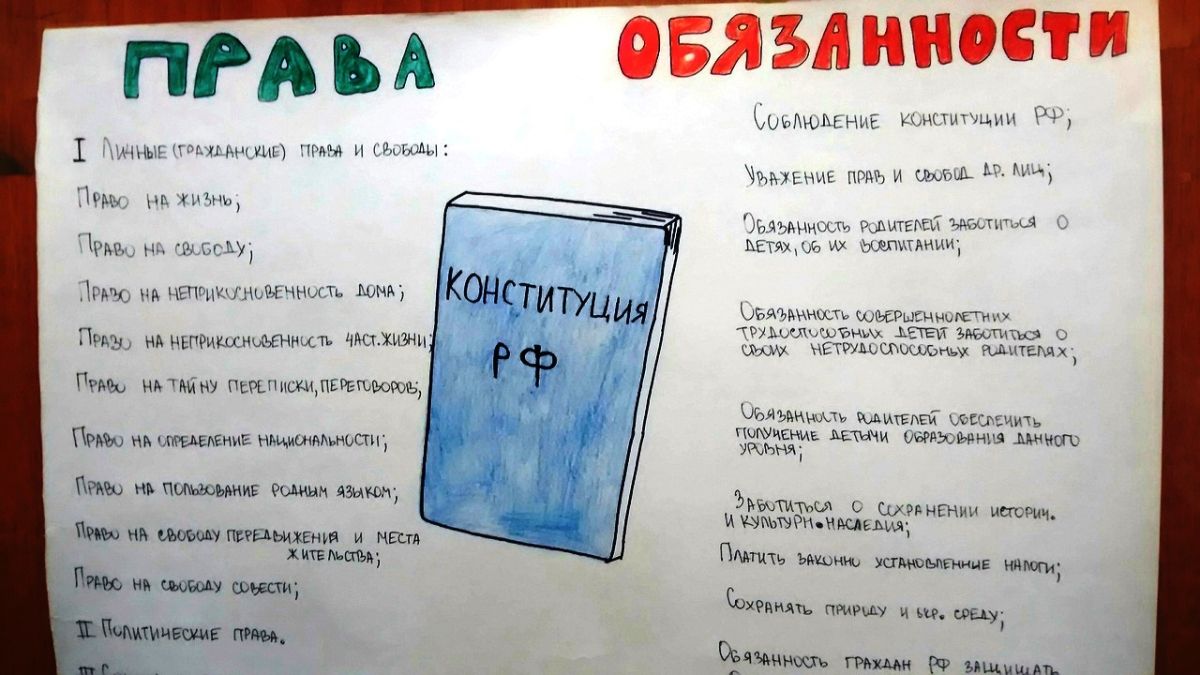 ПРАВА
I ЛИЧНЫЕ (ГРАЖДАНСКИЕ) ПРАВА И СВОБОДЫ:
ПРАВО НА ЖИЗНЬ;
ПРАВО НА СВОБОДУ;
ПРАВО НА НЕПРИКОСНОВЕННОСТЬ ДОМА;
ПРАВО НА НЕПРИКОСНОВЕННОСТЬ ЧАСТ. ЖИЗНИ;
ПРАВО НА ТАЙНУ ПЕРЕПИСКИ, ПЕРЕГОВОРОВ;
ПРАВО НА ОПРЕДЕЛЕНИЕ НАЦИОНАЛЬНОСТИ;
ПРАВО НА ПОЛЬЗОВАНИЕ РОДНЫМ ЯЗЫКОМ;
ПРАВО НА СВОБОДУ ПЕРЕДВИЖЕНИЯ И МЕСТА
ЖИТЕЛЬСТВА;
ПРАВО НА СВОБОДУ СОВЕСТИ;
II ПОЛИТИЧЕСКИЕ ПРАВА.
III
КОНСТИТУЦИЯ
РФ
ОБЯЗАННОСТИ
СОБЛЮДЕНИЕ КОНСТИТУЦИИ РФ;
УВАЖЕНИЕ ПРАВ И СВОБОД ДР. ЛИЦ;
ОБЯЗАННОСТЬ РОДИТЕЛЕЙ ЗАБОТИТЬСЯ О
ДЕТЯХ, ОБ ИХ ВОСПИТАНИИ;
ОБЯЗАННОСТЬ СОВЕРШЕННОЛЕТНИХ
ТРУДОСПОСОБНЫХ ДЕТЕЙ ЗАБОТИТЬСЯ О
СВОИХ НЕТРУДОСПОСОБНЫХ РОДИТЕЛЯХ;
ОБЯЗАННОСТЬ РОДИТЕЛЕЙ ОБЕСПЕЧИТЬ
ПОЛУЧЕНИЕ ДЕТЬМИ ОБРАЗОВАНИЯ ДАННОГО
УРОВНЯ;
ЗАБОТИТЬСЯ О СОХРАНЕНИИ ИСТОРИЧ.
И КУЛЬТУРН. НАСЛЕДИЯ;
ПЛАТИТЬ ЗАКОННО УСТАНОВЛЕННЫЕ НАЛОГИ;
СОХРАНЯТЬ ПРИРОДУ И ОКР. СРЕДУ;
ОБЯЗАННОСТЬ ГРАЖДАН РФ ЗАЩИЩАТЬ